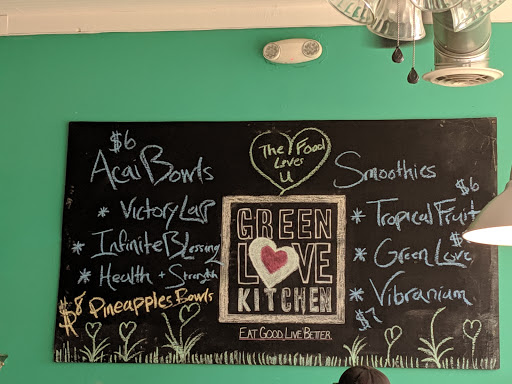 $6
Acai Bowls
* Victory Lap
* Infinite Blessing
* Health + Strength
$8 Pineapples Bowls
The Food
Loves
U
GREEN
LOVE
KITCHEN
EAT GOOD LIVE BETTER
Smoothies
$6
* Tropical Fruit
* Green Love
* Vibranium
$7